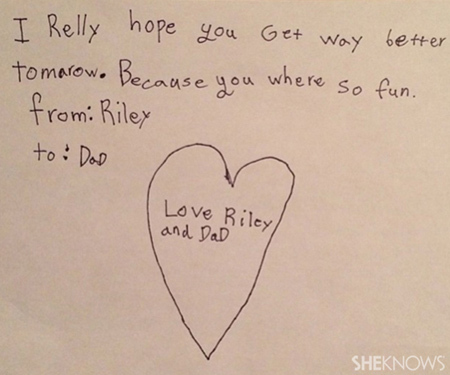 I Relly hope you Get way better
tomarow. Because you where so fun.
from: Riley
to: DaD
Love Riley
and DaD
SHEKNOWS